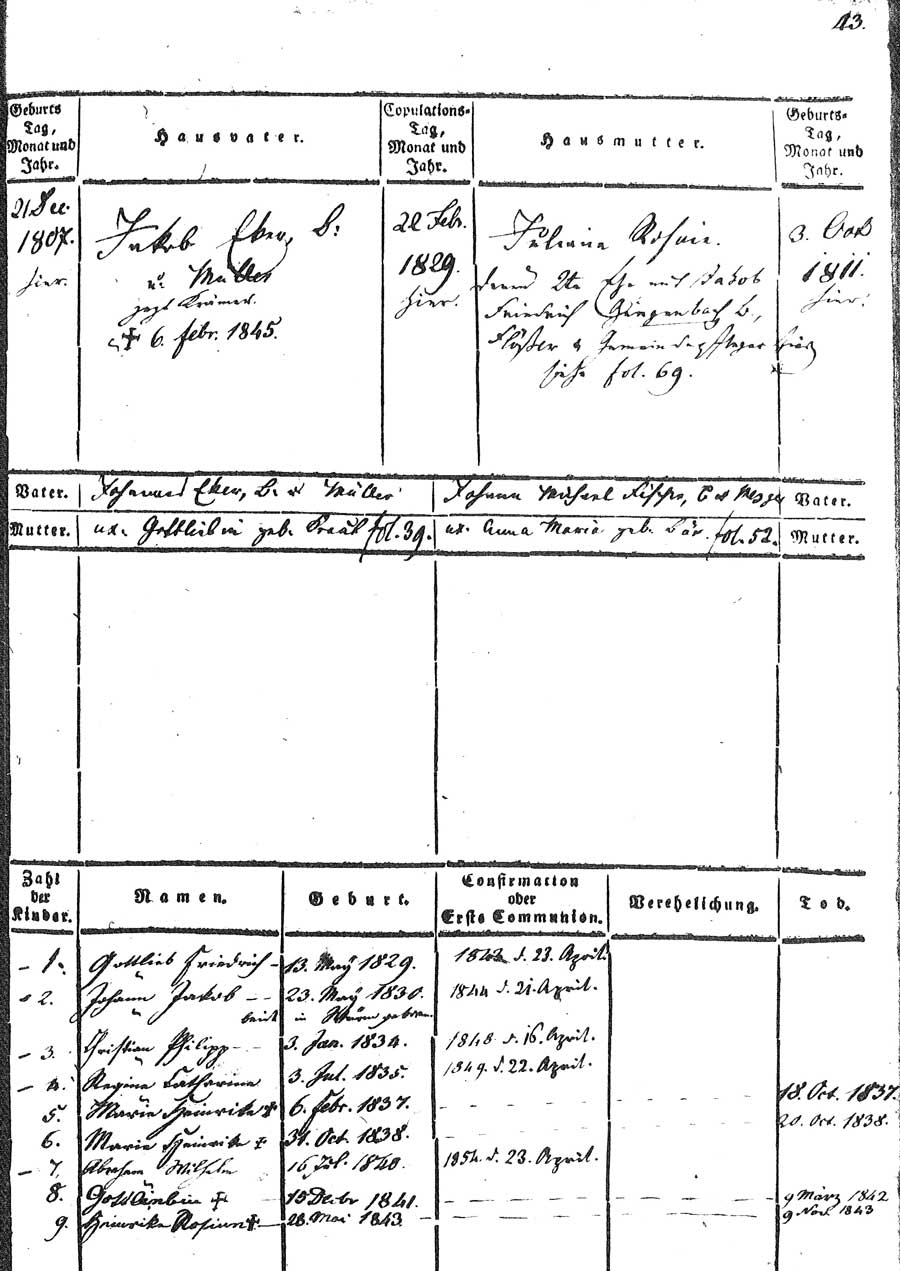 43.
Geburts Tag, Monat und Jahr.
Hausvater.
Copulations- Tag, Monat und Jahr.
Hausmutter.
Geburts- Tag, Monat und Jahr.
21 Dec. 1807. hier.
Jakob Eker, B.
u. Müller
+ 6. Febr. 1845.
22 Febr. 1829. hier.
Juliana Rosine.
deren 2te Ehe mit Jakob
Friedrich Gengenbach B.,
Flößer & Gemeindepfleger hier
siehe fol. 69.
3. Oct 1811. hier.
Vater. Johannes Eker, B. u Müller Johann Michael B. u Mezger Vater.
Mutter. ux. Gottliebin geb. fol. 39. ux. Anna Maria geb. Bär. fol. 52. Mutter.
Zahl der Kinder.
Namen.
Geburt.
Confirmation oder Erste Communion.
Verehelichung.
Tod.
- 1. Gottlieb Friedrich - 13. May 1829. d. 23. April.
2. Johann Jakob -- 23. May 1830. 1844 d. 21. April.
beide in Würm geboren.
- 3. Christian Philipp -- 3. Jan. 1834. 1848 d. 16. April.
- 4. Regine Catharine 3. Jul. 1835. 1849. d. 22. April.
5. Marie Heinrike + 6. Febr. 1837. 18. Oct. 1837.
6. Marie Heinrike + 31. Oct. 1838. 20. Oct. 1838.
- 7. Abraham Wilhelm 16 Jul. 1840. 1854. d. 23. April.
8. Gottliebin + 15 Decbr 1841. 9 März 1842
9. Heinrike Rosine + 28. Mai 1843. 9 Nov. 1843